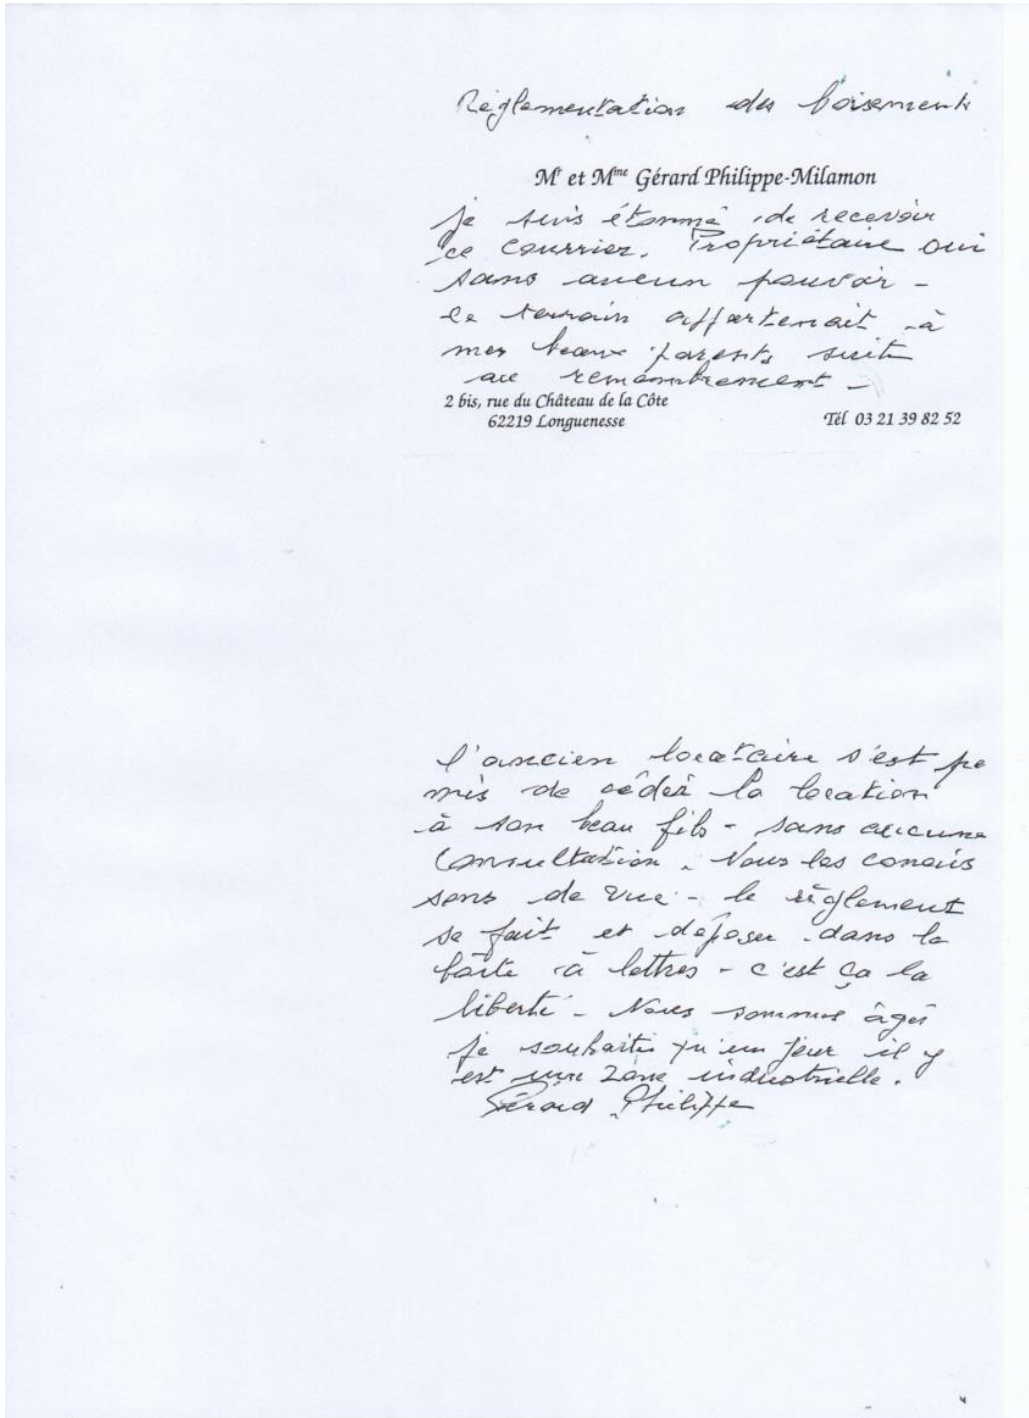 Réglementation des boisements
Mr et Mme Gérard Philippe-Milamon
je suis étonné de recevoir
ce courrier. Propriétaire oui
sans aucun pouvoir -
le terrain appartenait à
mes beaux parents suite
au remembrement -
2 bis, rue du Château de la Côte
62219 Longuenesse
Tél 03 21 39 82 52
l'ancien locataire s'est pe
mis de céder la location
à son beau fils - sans aucune
consultation. Nous les conais
sons de vue - le réglement
se fait et déposer dans la
boite à lettres - c'est ça la
liberté - Nous sommes âgés
je souhaite qu'un jour il y
est une zone industrielle.
Gérard Philippe